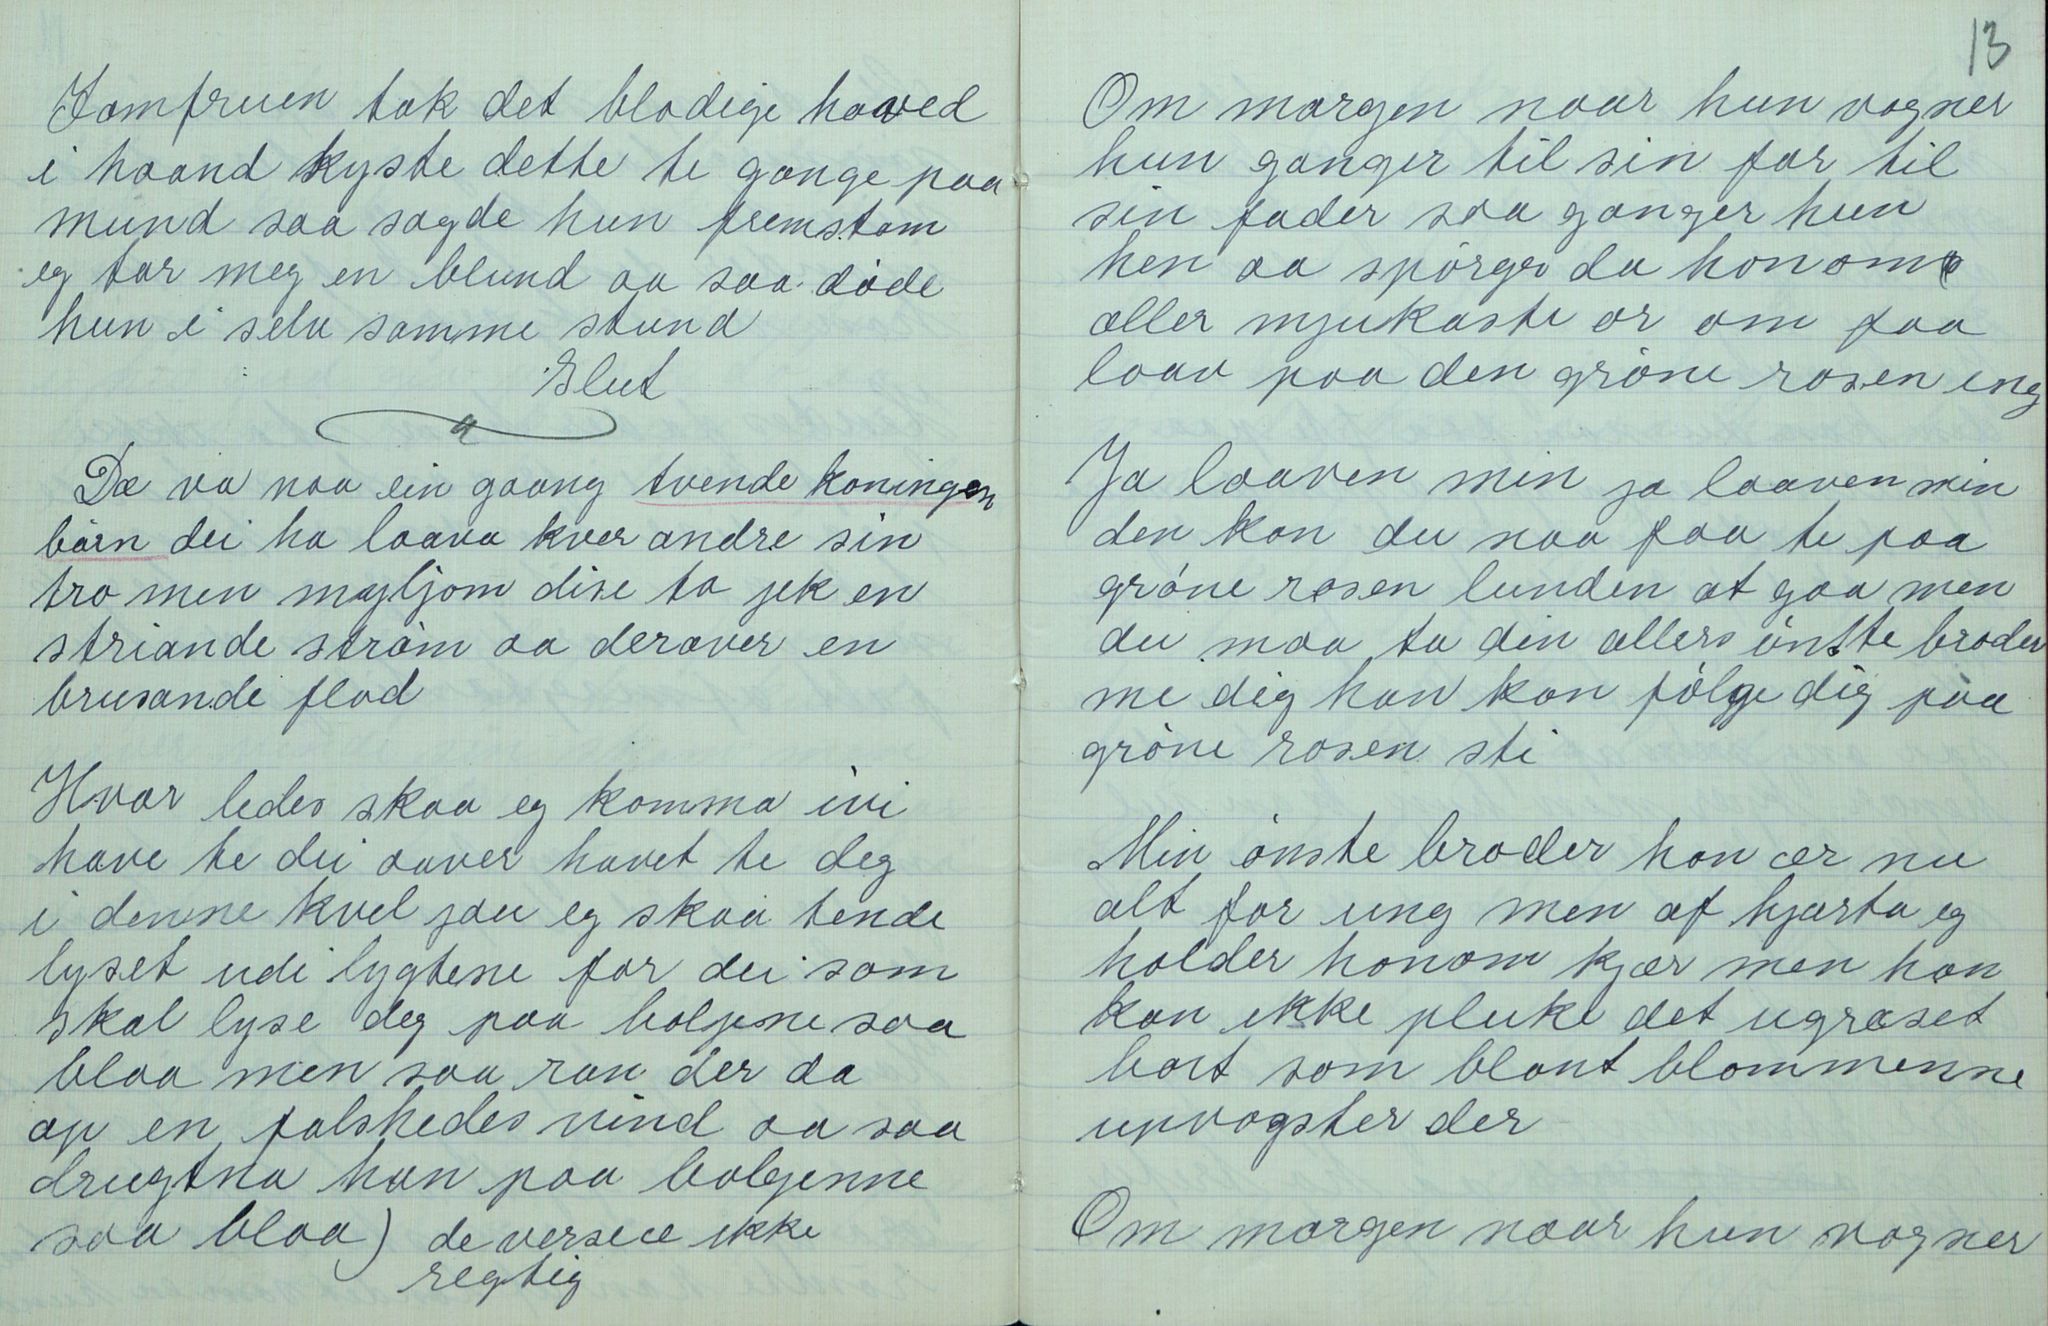 Jomfruen tok det blodige hoved
i haand kyste dette te gange paa
mund saa sagde hun fremstom
eg tar meg en blund aa saa döde
hun i selv samme stund
Slut
Dæ va naa ein gaang tvende koningen
börn dei ha laava kver andre sin
tro men myljom dise to jek en
striande ström aa derover en
brusande flod
Hvor ledes skaa eg komma ivi
have te dei aaver havet te deg
i denne kvel jau eg skaa tende
lyset udi lygtene for dei som
skal lyse deg paa boljene saa
blaa men saa ran der da
op en falskedes vind aa saa
drugtna han paa bolgenne
saa blaa) de verset ikke
regtig
13
Om morgen naar hun vogner
hun ganger til sin far til
sin fader saa ganger hun
hen aa spörger da honom
aller mjukaste or om faa
laav paa den gröne rosen eng
Ja laaven min ja laaven min
den kan du naa faa te paa
gröne rosen lunden at gaa men
du maa ta din allers önste broder
me dig han kan fölge dig paa
gröne rosen sti
Min önste broder han ær nu
alt for ung men af hjærta eg
holder honom kjær men han
kan ikke pluke det ugræset
bort som blant blommenne
upvogster der
Om morgen naar hun vogner